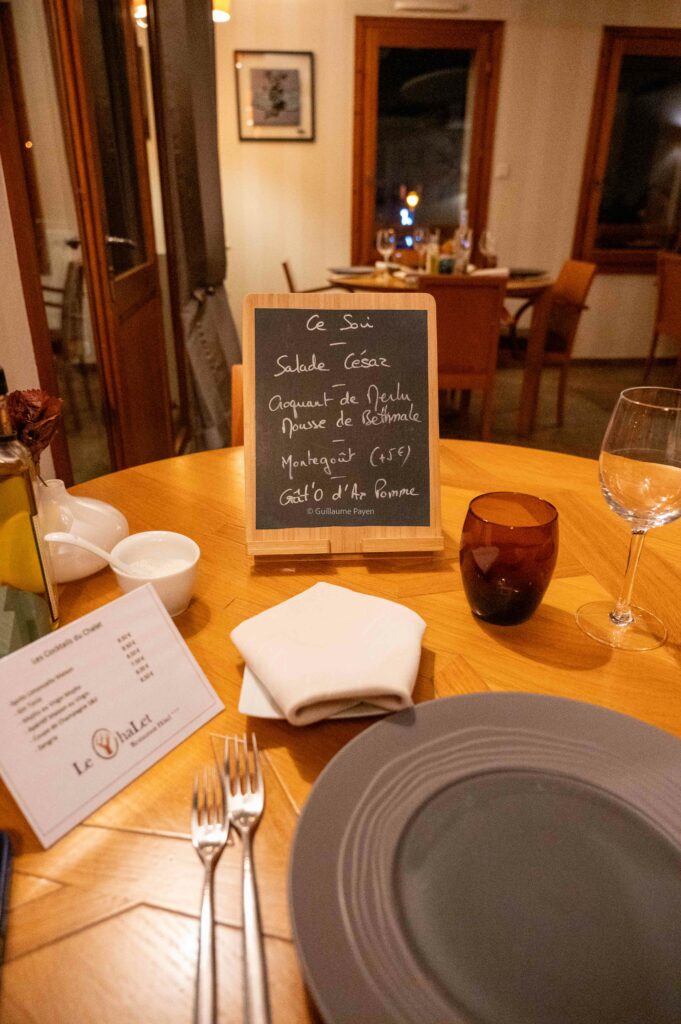 Ce Soir
Salade César
Croquant de Merlu
Mousse de Bethmale
Montegoût (+5€)
Gât'O d'Az Pomme
© Guillaume Payen
Les Cocktails du Chalet
Le Chalet
Restaurant Hôtel ***